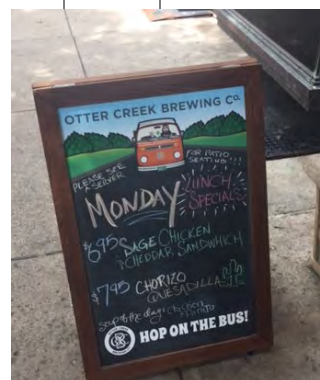 OTTER CREEK BREWING Co.
PLEASE SEE
A SERVER
FOR PATIO
SEATING!!!
MONDAY
LUNCH
SPECIALS
$6.95 SAGE CHICKEN
+ CHEDDAR SANDWHICH
$7.95 CHORIZO
QUESADILLA
soup of the day: chicken
HOP ON THE BUS!